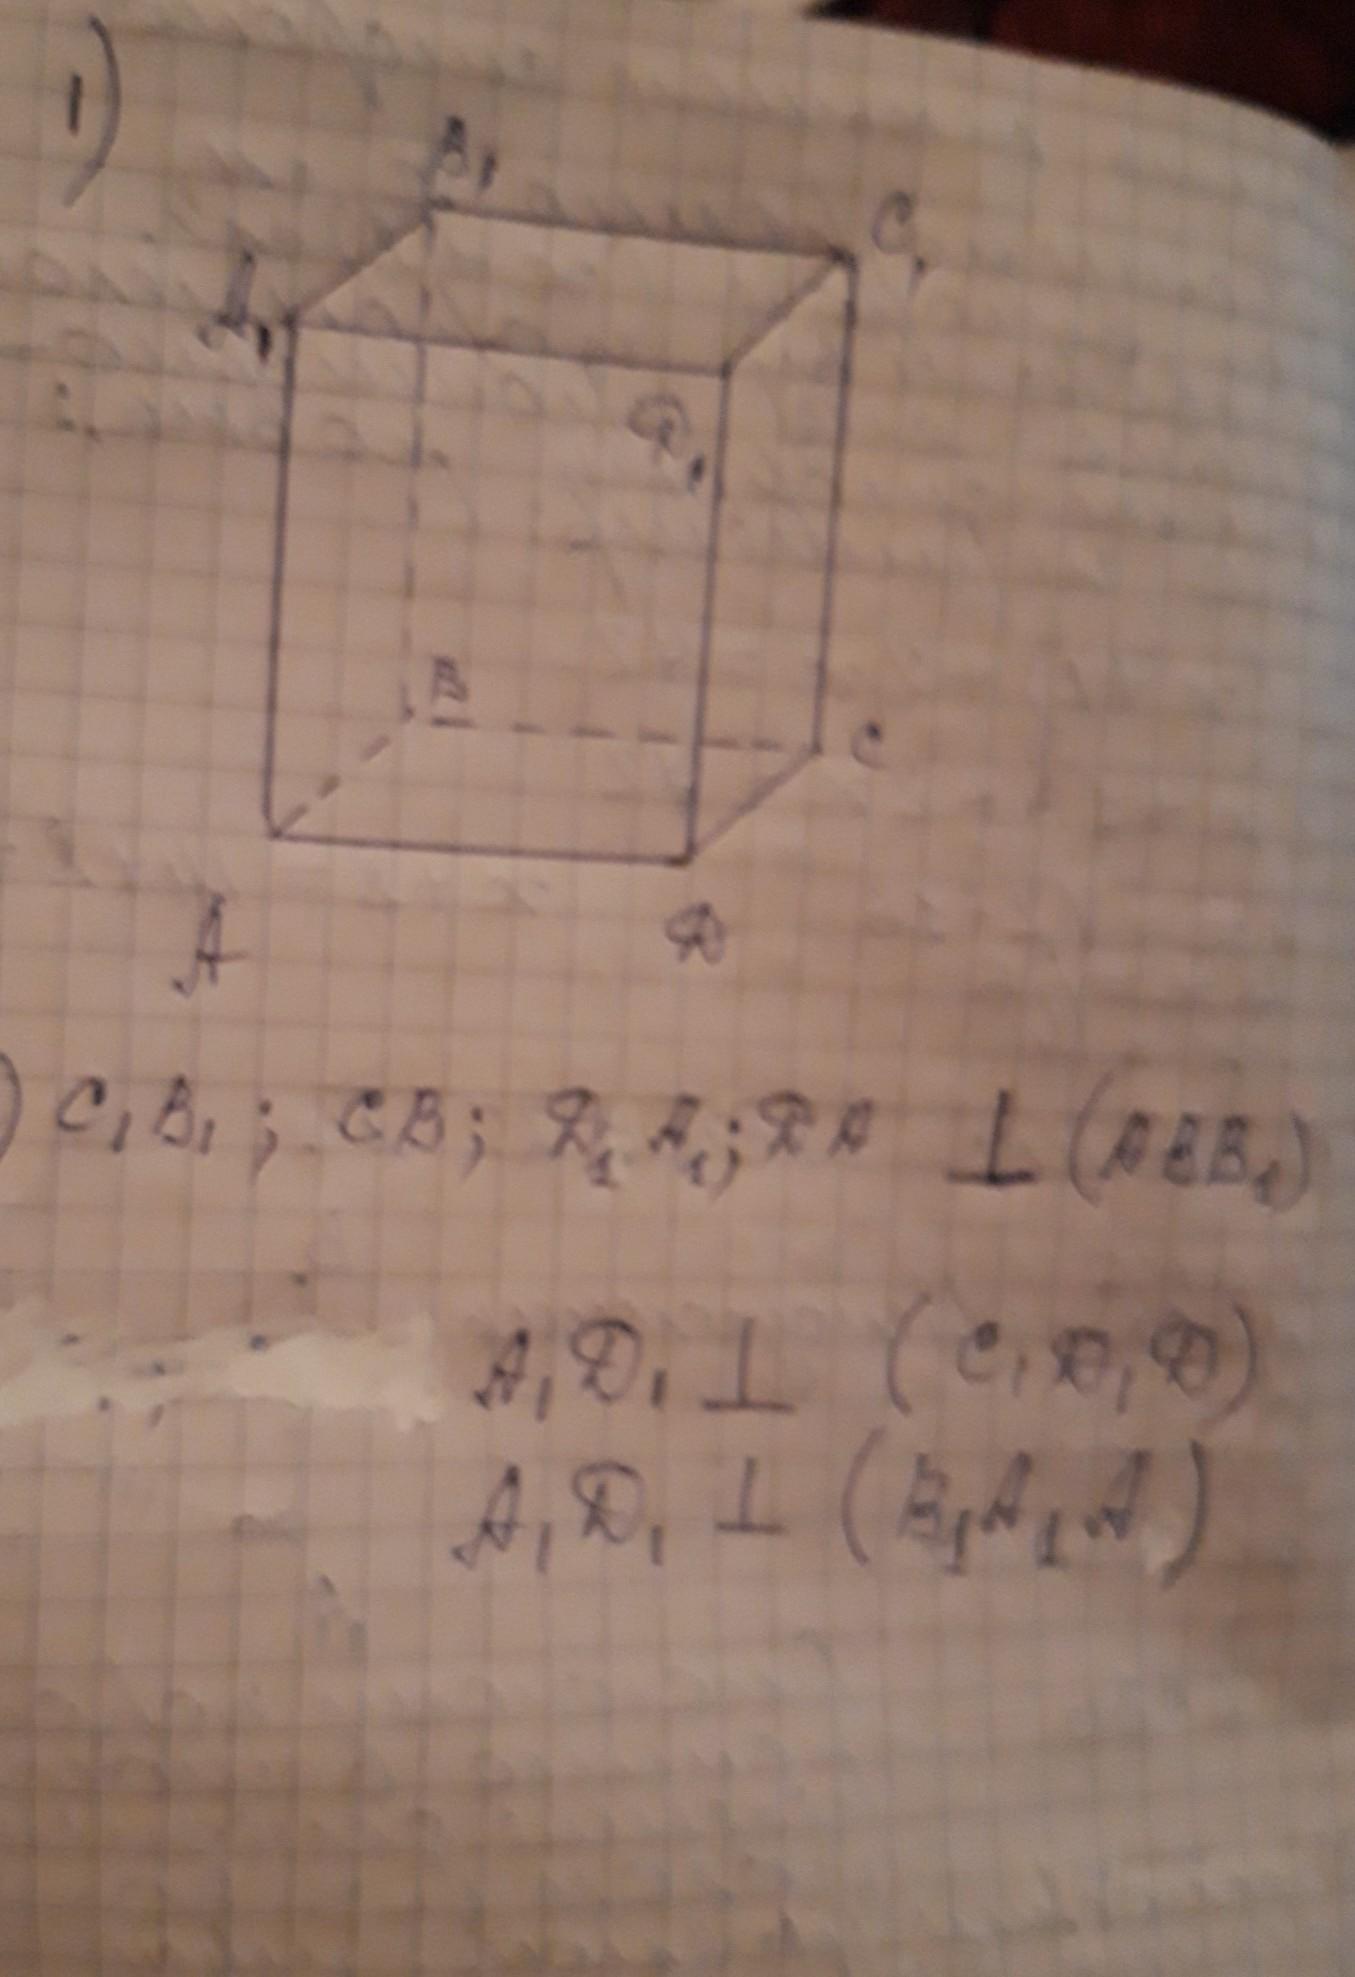 1)
B₁
C₁
A₁
D₁
B
C
A
D
) C₁B₁; CB; D₁A₁; DA ⊥ (ABB₁)
A₁D₁ ⊥ (C₁D₁D)
A₁D₁ ⊥ (B₁A₁A)